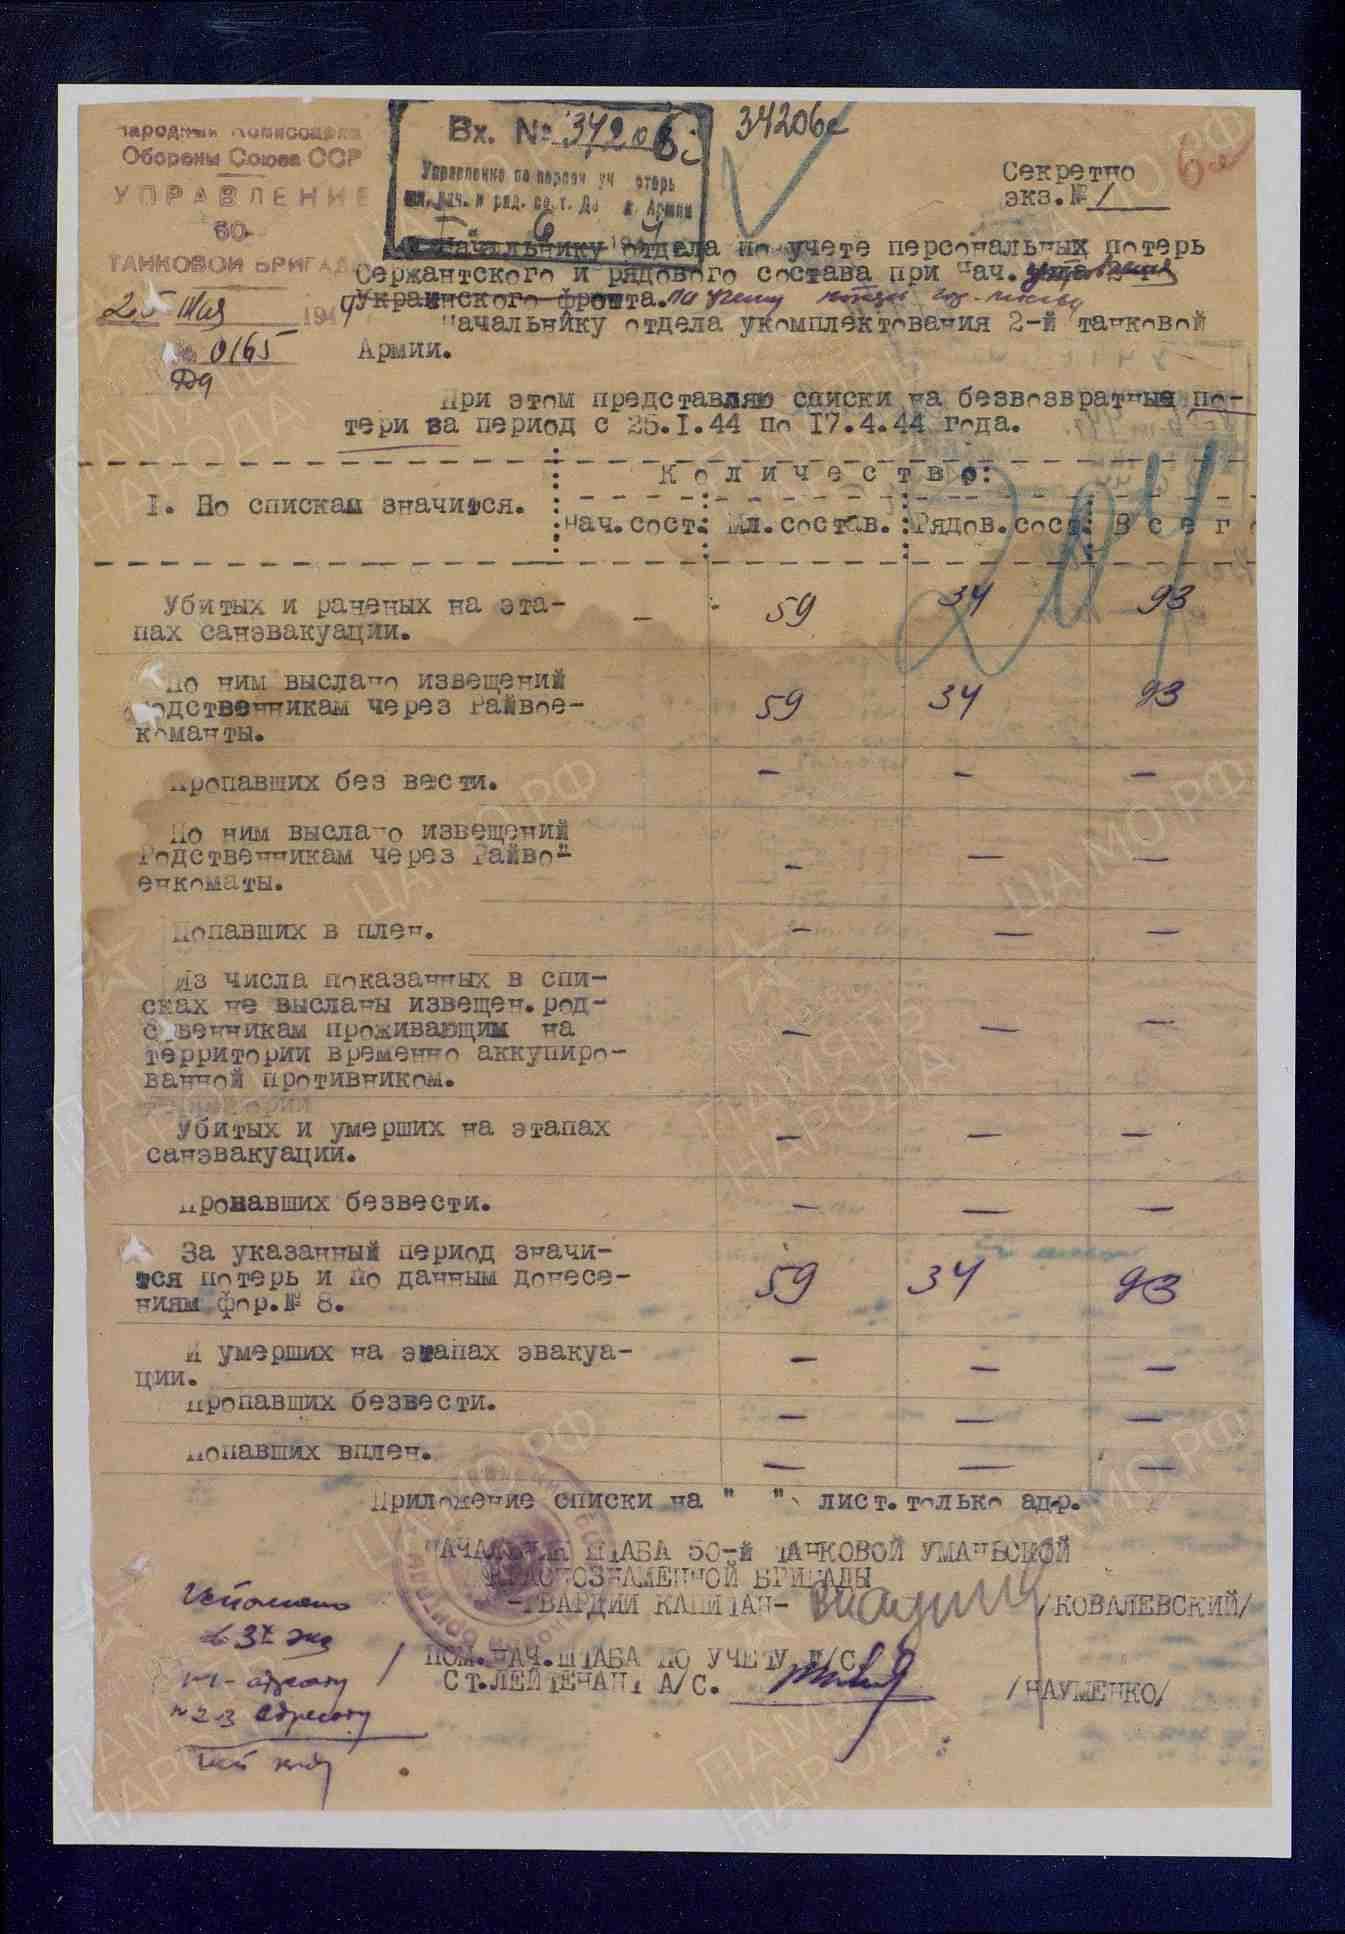 Народный Комиссариат
Обороны Союза ССР
УПРАВЛЕНИЕ
ТАНКОВОЙ БРИГАДЫ
25 Мая 1944
№ 0165
Вх. № 34206с
34206с
Управление по персон уч потерь
мл. нач. и ряд. сост. Армии
Секретно
экз.№ 1
6с
Начальнику отдела по учете персональных потерь
Сержантского и рядового состава при Нач.
Украинского фронта.
Начальнику отдела укомплектования 2-й танковой
Армии.
При этом представляю списки на безвозвратные по-
тери за период с 25.I.44 по 17.4.44 года.
204
Количество:
I. По спискам значится. Нач.сост: Мл.состав. Рядов.сост. Всег
Убитых и раненых на эта- - 59 34 93
пах санэвакуации.
По ним выслано извещений
родственникам через Райвое- 59 34 93
команты.
Пропавших без вести. - - -
По ним выслано извещений
Родственникам через Райво-
енкоматы. - - -
Попавших в плен. - - -
Из числа показанных в спи-
сках не высланы извещен.род-
ственникам проживающим на - - -
территории временно аккупиро-
ванной противником.
территории
Убитых и умерших на этапах - - -
санэвакуации.
Пропавших безвести. - - -
За указанный период значи-
тся потерь и по данным донесе- 59 34 93
ниям фор.№ 8.
И умерших на этапах эвакуа- - - -
ции.
Пропавших безвести. - - -
Попавших вплен. - - -
Приложение списки на " " лист.только адр.
НАЧАЛЬНИК ШТАБА 50-й ТАНКОВОЙ УМАНЬСКОЙ
КРАСНОЗНАМЕННОЙ БРИГАДЫ
-ГВАРДИИ КАПИТАН- /КОВАЛЕВСКИЙ/
ПОМ.НАЧ.ШТАБА ПО УЧЕТУ Л/С
СТ.ЛЕЙТЕНАНТ А/С. /НАУМЕНКО/
в 3х экз
№1- адресату
№2-3 адресату
ПАМЯТЬ НАРОДА
ЦАМО.РФ